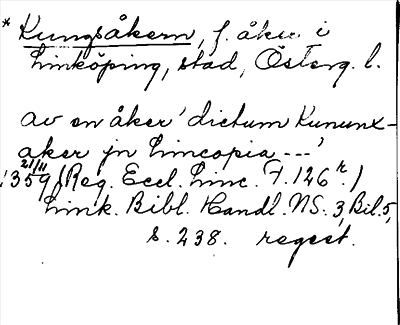 * Kungsåkern, f. åker i
Linköping, stad, Österg. l.
av en åker 'dictum Kununx-
aker jn Lincopia ---'
21/11
1359 (Reg. Eccl. Linc. F. 126 r.)
Link. Bibl. Handl. NS. 3, Bil. 5,
s. 238. regest.